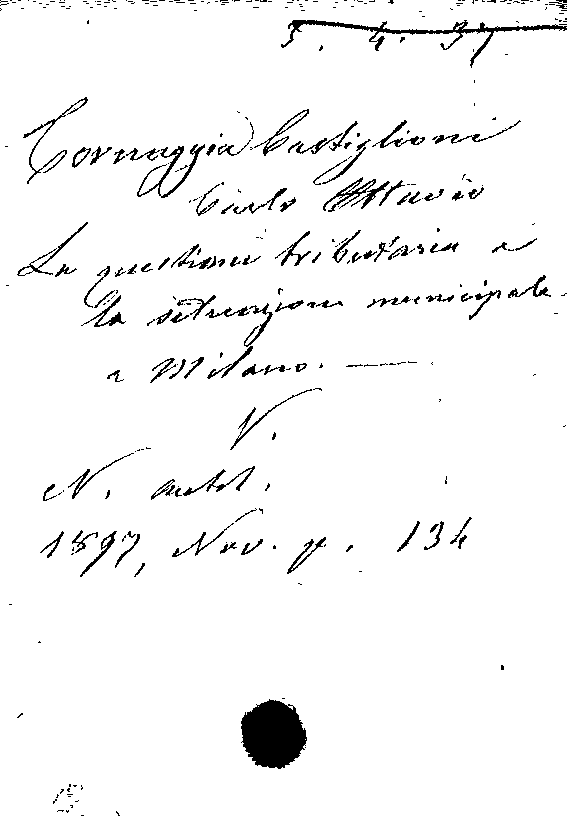 3. 4. 37
Cornaggia Castiglioni
Carlo Ottavio
La questione tributaria e
la situazione municipale
a Milano. —
V.
N. antol.
1897, Nov. p. 134